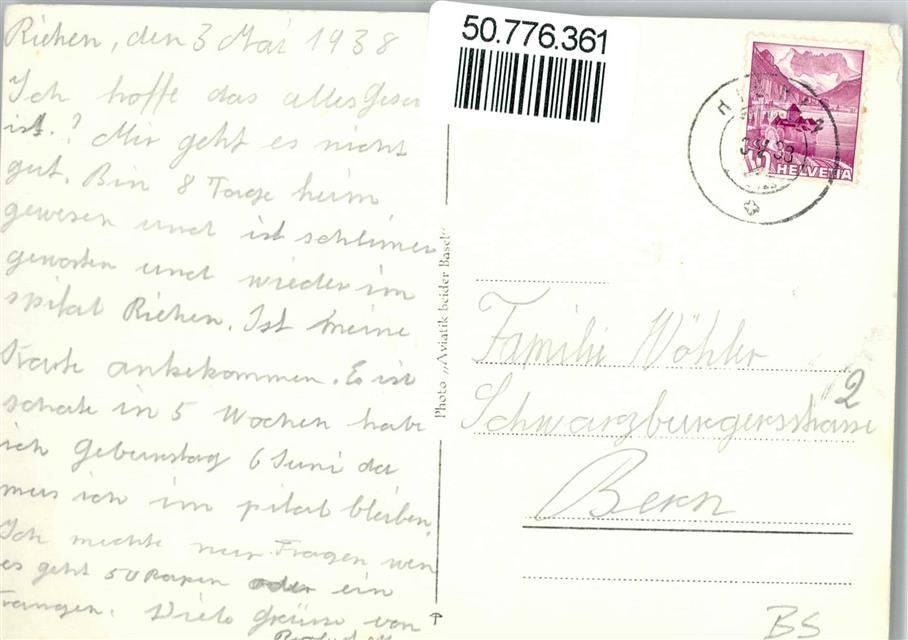 Riehen, den 3 Mai 1938
Ich hoffe das alles Gesu
ist.? Mir geht es nicht
gut. Bin 8 Tage heim
gewesen und ist schlimer
geworten und wieder im
spital Riehen. Ist meine
Karte ankekommen. Es ist
schate in 5 Wochen habe
ich Geburstag 6 Juni da
mus ich im spital bleiben
Ich mechte nur Fragen wen
es geht 50 Rapen oder ein
Frangen. Viele Grüsse von
50.776.361
HELVETIA
Photo „Aviatik beider Basel“
Familie Wöhler
Schwarzburgersstrasse 2
Bern
BS